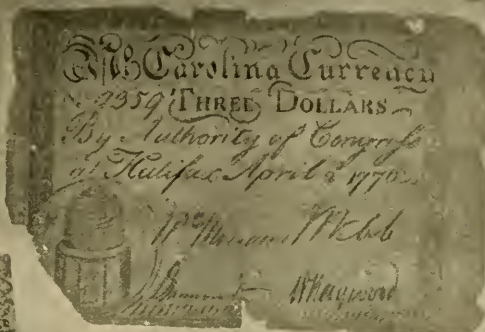 Carolina Currency
No. 9359 THREE DOLLARS
By Authority of Congress
at Halifax April 2 1776
Webb
WHaywood